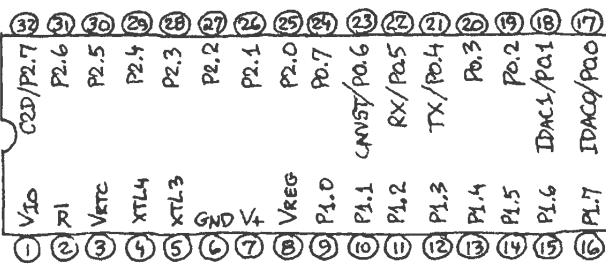 32 31 30 29 28 27 26 25 24 23 22 21 20 19 18 17
C2D/P2.7 P2.6 P2.5 P2.4 P2.3 P2.2 P2.1 P2.0 P0.7 CNVST/P0.6 RX/P0.5 TX/P0.4 P0.3 P0.2 IDAC1/P0.1 IDAC0/P0.0
VIO RI VRTC XTL4 XTL3 GND V+ VREG P1.0 P1.1 P1.2 P1.3 P1.4 P1.5 P1.6 P1.7
1 2 3 4 5 6 7 8 9 10 11 12 13 14 15 16